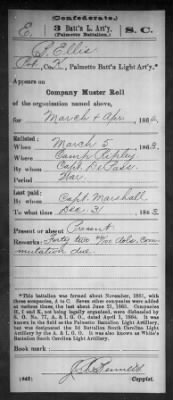 (Confederate.)
E. 3 Batt'n L. Art'y. S. C.
(Palmetto Batt'n.)
Ellis
Co. K, Palmetto Batt'n Light Art'y.*
Appears on
Company Muster Roll
of the organization named above,
for March & Apr, 186
Enlisted:
When March 5, 186
Where Camp Ripley
By whom Capt. DePass
Period War
Last paid:
By whom Capt. Marshall
To what time Dec. 31, 1863
Present or absent Present
Remarks: Forty two dols. com-
mutation due.
*This battalion was formed about November, 1861, with
three companies, A to C. Seven other companies were added
at various times, the last about June 23, 1862. Companies
H, I and K, not being legally organized, were disbanded by
S. O. No. 77, A. & I. G. O., dated April 1, 1864. It was
known in the field as the Palmetto Light Artillery Battalion,
but was designated the 3d Battalion South Carolina Light
Artillery by the A. & I. G. O. It was also known as White's
Battalion South Carolina Light Artillery.
Book mark:
(642)
Copyist.